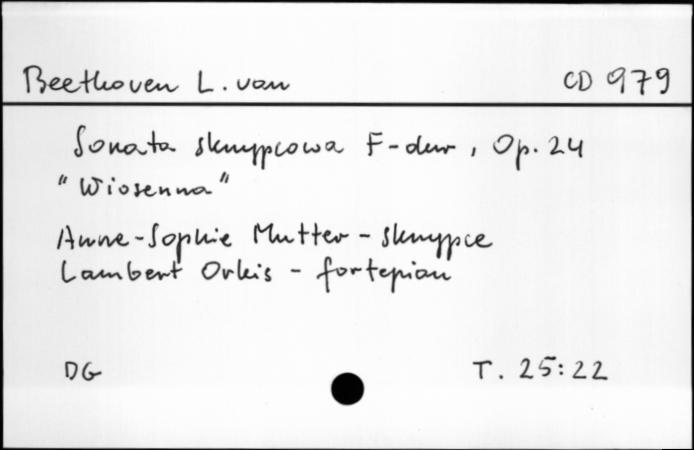 Beethoven L. van CD 979
Sonata skrzypcowa F-dur, Op. 24
"Wiosenna"
Anne-Sophie Mutter - skrzypce
Lambert Orkis - fortepian
DG T. 25:22